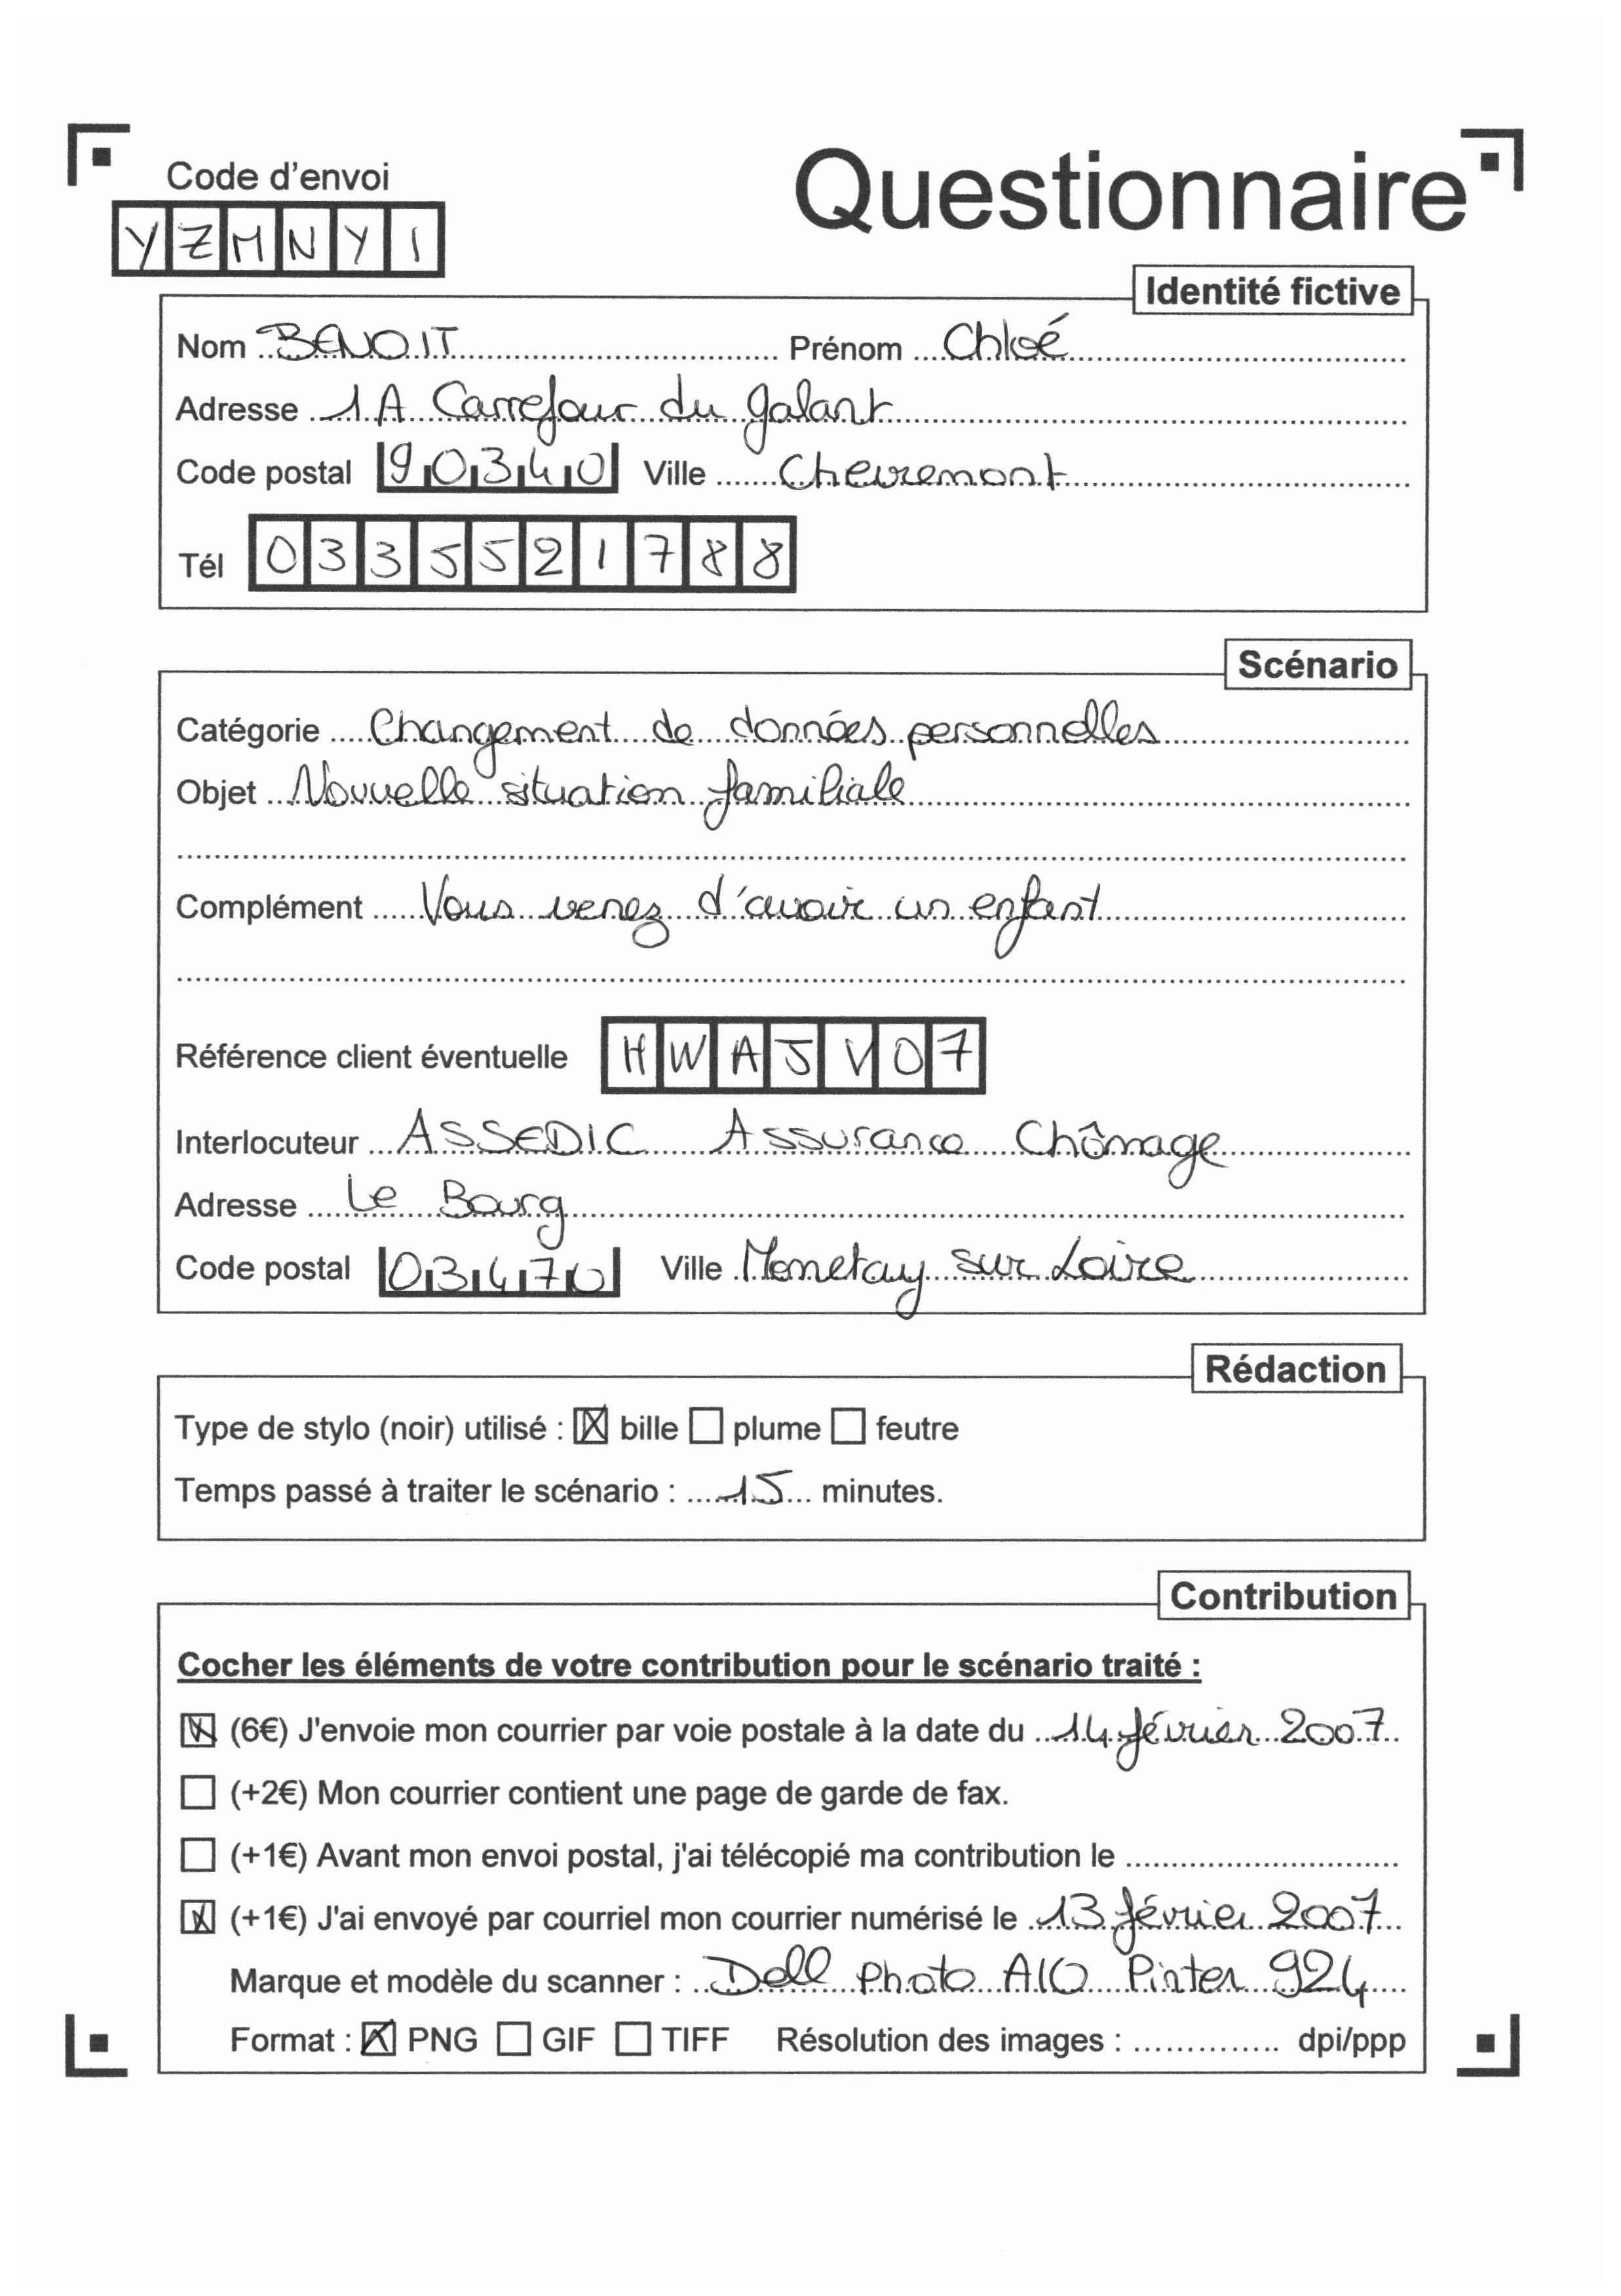 Code d'envoi
Questionnaire
YZMNYI
Identité fictive
Nom BENOIT Prénom Chloé
Adresse 1A Carrefour du galant
Code postal 90340 Ville Chevremont
Tél 0335521788
Scénario
Catégorie Changement de données personnelles
Objet Nouvelle situation familiale
Complément Vous venez d'avoir un enfant
Référence client éventuelle HWAJV07
Interlocuteur ASSEDIC Assurance Chômage
Adresse Le Bourg
Code postal 03470 Ville Monetay sur Loire
Rédaction
Type de stylo (noir) utilisé : ☒ bille ☐ plume ☐ feutre
Temps passé à traiter le scénario : 15 minutes.
Contribution
Cocher les éléments de votre contribution pour le scénario traité :
☒ (6€) J'envoie mon courrier par voie postale à la date du 14 février 2007
☐ (+2€) Mon courrier contient une page de garde de fax.
☐ (+1€) Avant mon envoi postal, j'ai télécopié ma contribution le
☒ (+1€) J'ai envoyé par courriel mon courrier numérisé le 13 février 2007
Marque et modèle du scanner : Dell Photo AIO Pinter 924
Format : ☒ PNG ☐ GIF ☐ TIFF Résolution des images : dpi/ppp